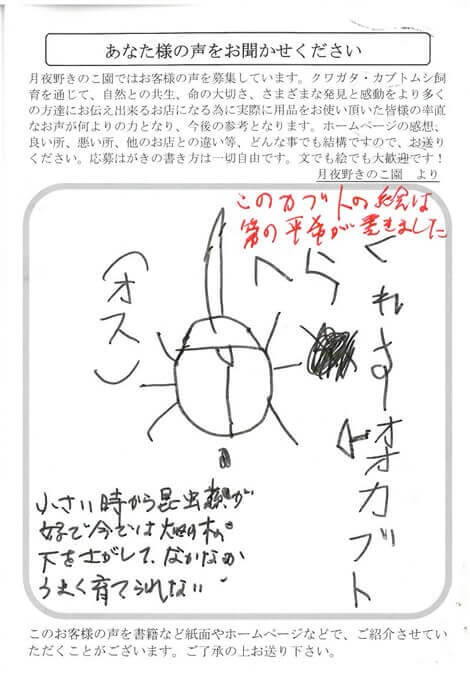 あなた様の声をお聞かせください
月夜野きのこ園ではお客様の声を募集しています。クワガタ・カブトムシ飼
育を通じて、自然との共生、命の大切さ、さまざまな発見と感動をより多く
の方達にお伝え出来るお店になる為に実際に用品をお使い頂いた皆様の率直
なお声が何よりの力となり、今後の参考となります。ホームページの感想、
良い所、悪い所、他のお店との違い等、どんな事でも結構ですので、お送り
ください。応募はがきの書き方は一切自由です。文でも絵でも大歓迎です！
月夜野きのこ園 より
このカブトの絵は
弟の平希が書きました
(オス)
へらくれすーオオカブト
小さい時から昆虫が
好で今では畑の木の
下をさがして、なかなか
うまく育てられない
このお客様の声を書籍など紙面やホームページなどで、ご紹介させてい
ただくことがございます。ご了承の上お送り下さい。